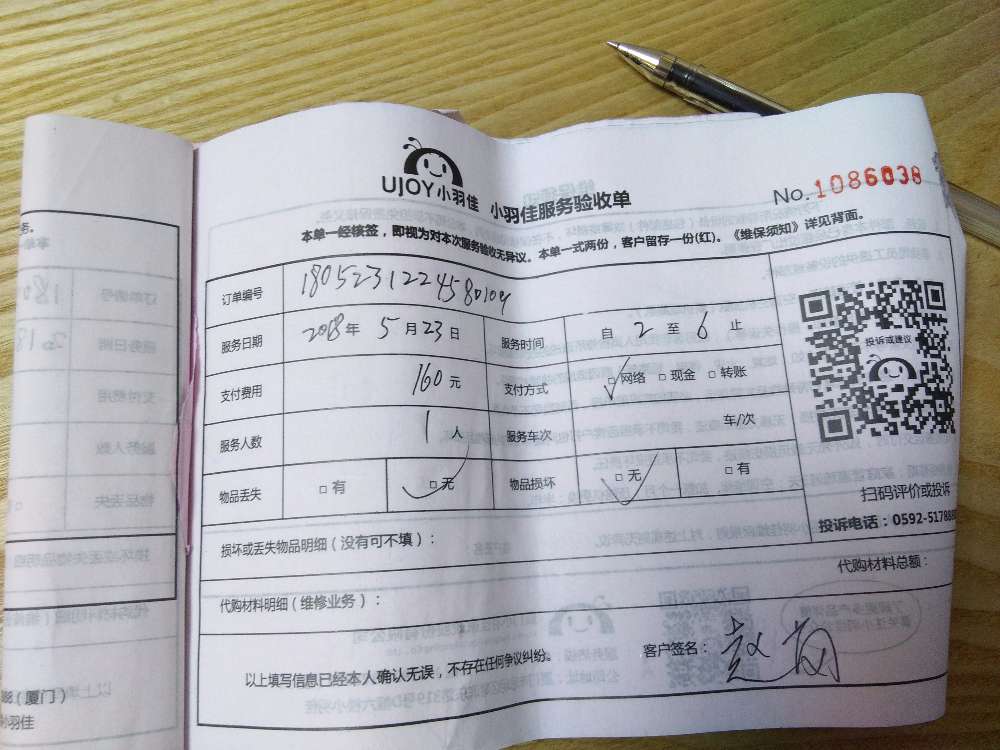 UJOY小羽佳 小羽佳服务验收单
No.1086038
本单一经核签，即视为对本次服务验收无异议。本单一式两份，客户留存一份(红)。《维保须知》详见背面。
订单编号 180523122458010
服务日期 2018年 5月23日 服务时间 自 2 至 6 止
支付费用 160元 支付方式 □网络 □现金 □转账
服务人数 1人 服务车次 车/次
物品丢失 □有 □无 物品损坏 □无 □有
投诉或建议
扫码评价或投诉
投诉电话：0592-51788
损坏或丢失物品明细（没有可不填）：
代购材料明细（维修业务）： 代购材料总额：
以上填写信息已经本人确认无误，不存在任何争议纠纷。 客户签名：赵
（厦门）
小羽佳